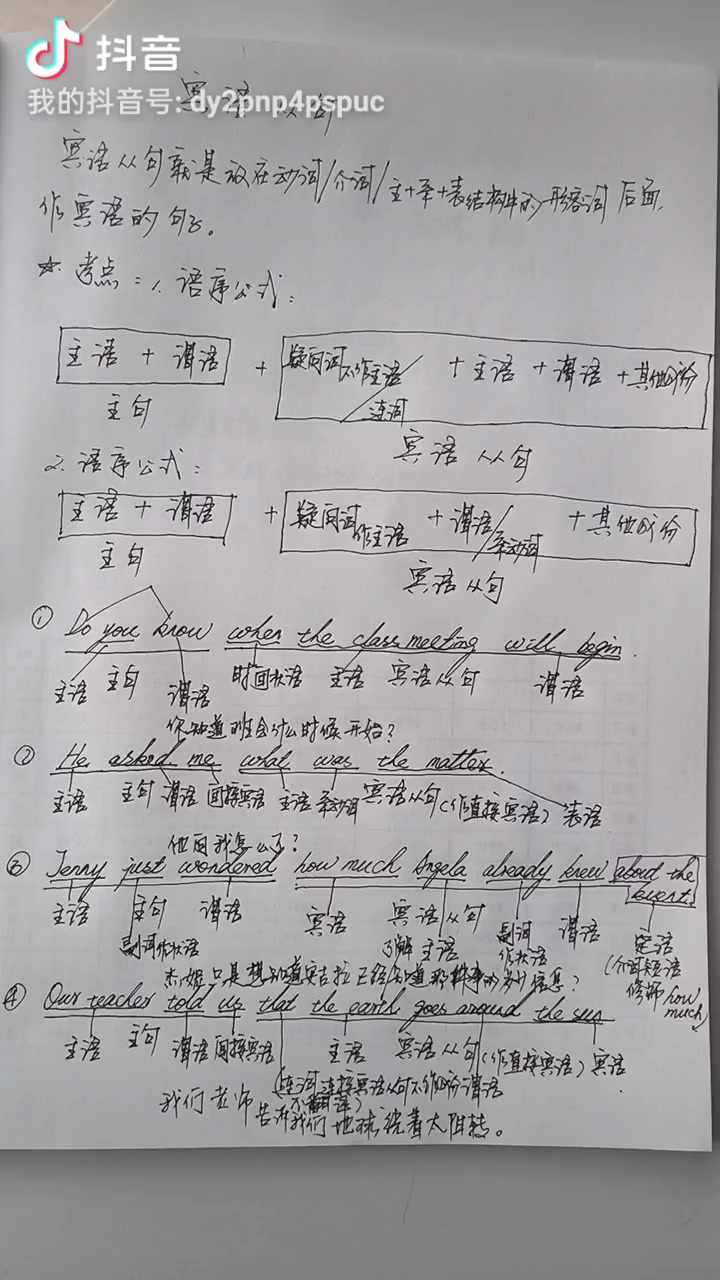 抖音
我的抖音号: dy2pnp4pspuc
宾语从句
宾语从句就是放在动词/介词/主+系+表结构中的形容词后面,
作宾语的句子。
☆ 考点: 1. 语序公式:
主语 + 谓语 + 疑问词不作主语/连词 + 主语 + 谓语 + 其他成份
主句 宾语从句
2. 语序公式:
主语 + 谓语 + 疑问词作主语 + 谓语/系动词 + 其他成份
主句 宾语从句
① Do you know when the class meeting will begin.
主语 主句 谓语 时间状语 主语 宾语从句 谓语
你知道班会什么时候开始?
② He asked me what was the matter.
主语 主句 谓语 间接宾语 主语 系动词 宾语从句(作直接宾语) 表语
他问我怎么了?
③ Jenny just wondered how much Angela already knew about the event.
主语 主句 谓语 宾语 宾语从句 主语 副词作状语 谓语 定语
副词作状语 了解 (介词短语修饰 how much)
杰妮只是想知道安吉拉已经知道那件事的多少信息?
④ Our teacher told us that the earth goes around the sun
主语 主句 谓语 间接宾语 主语 宾语从句(作直接宾语) 宾语
(连词 连接宾语从句不作成份 不翻译) 谓语
我们老师告诉我们地球绕着太阳转。